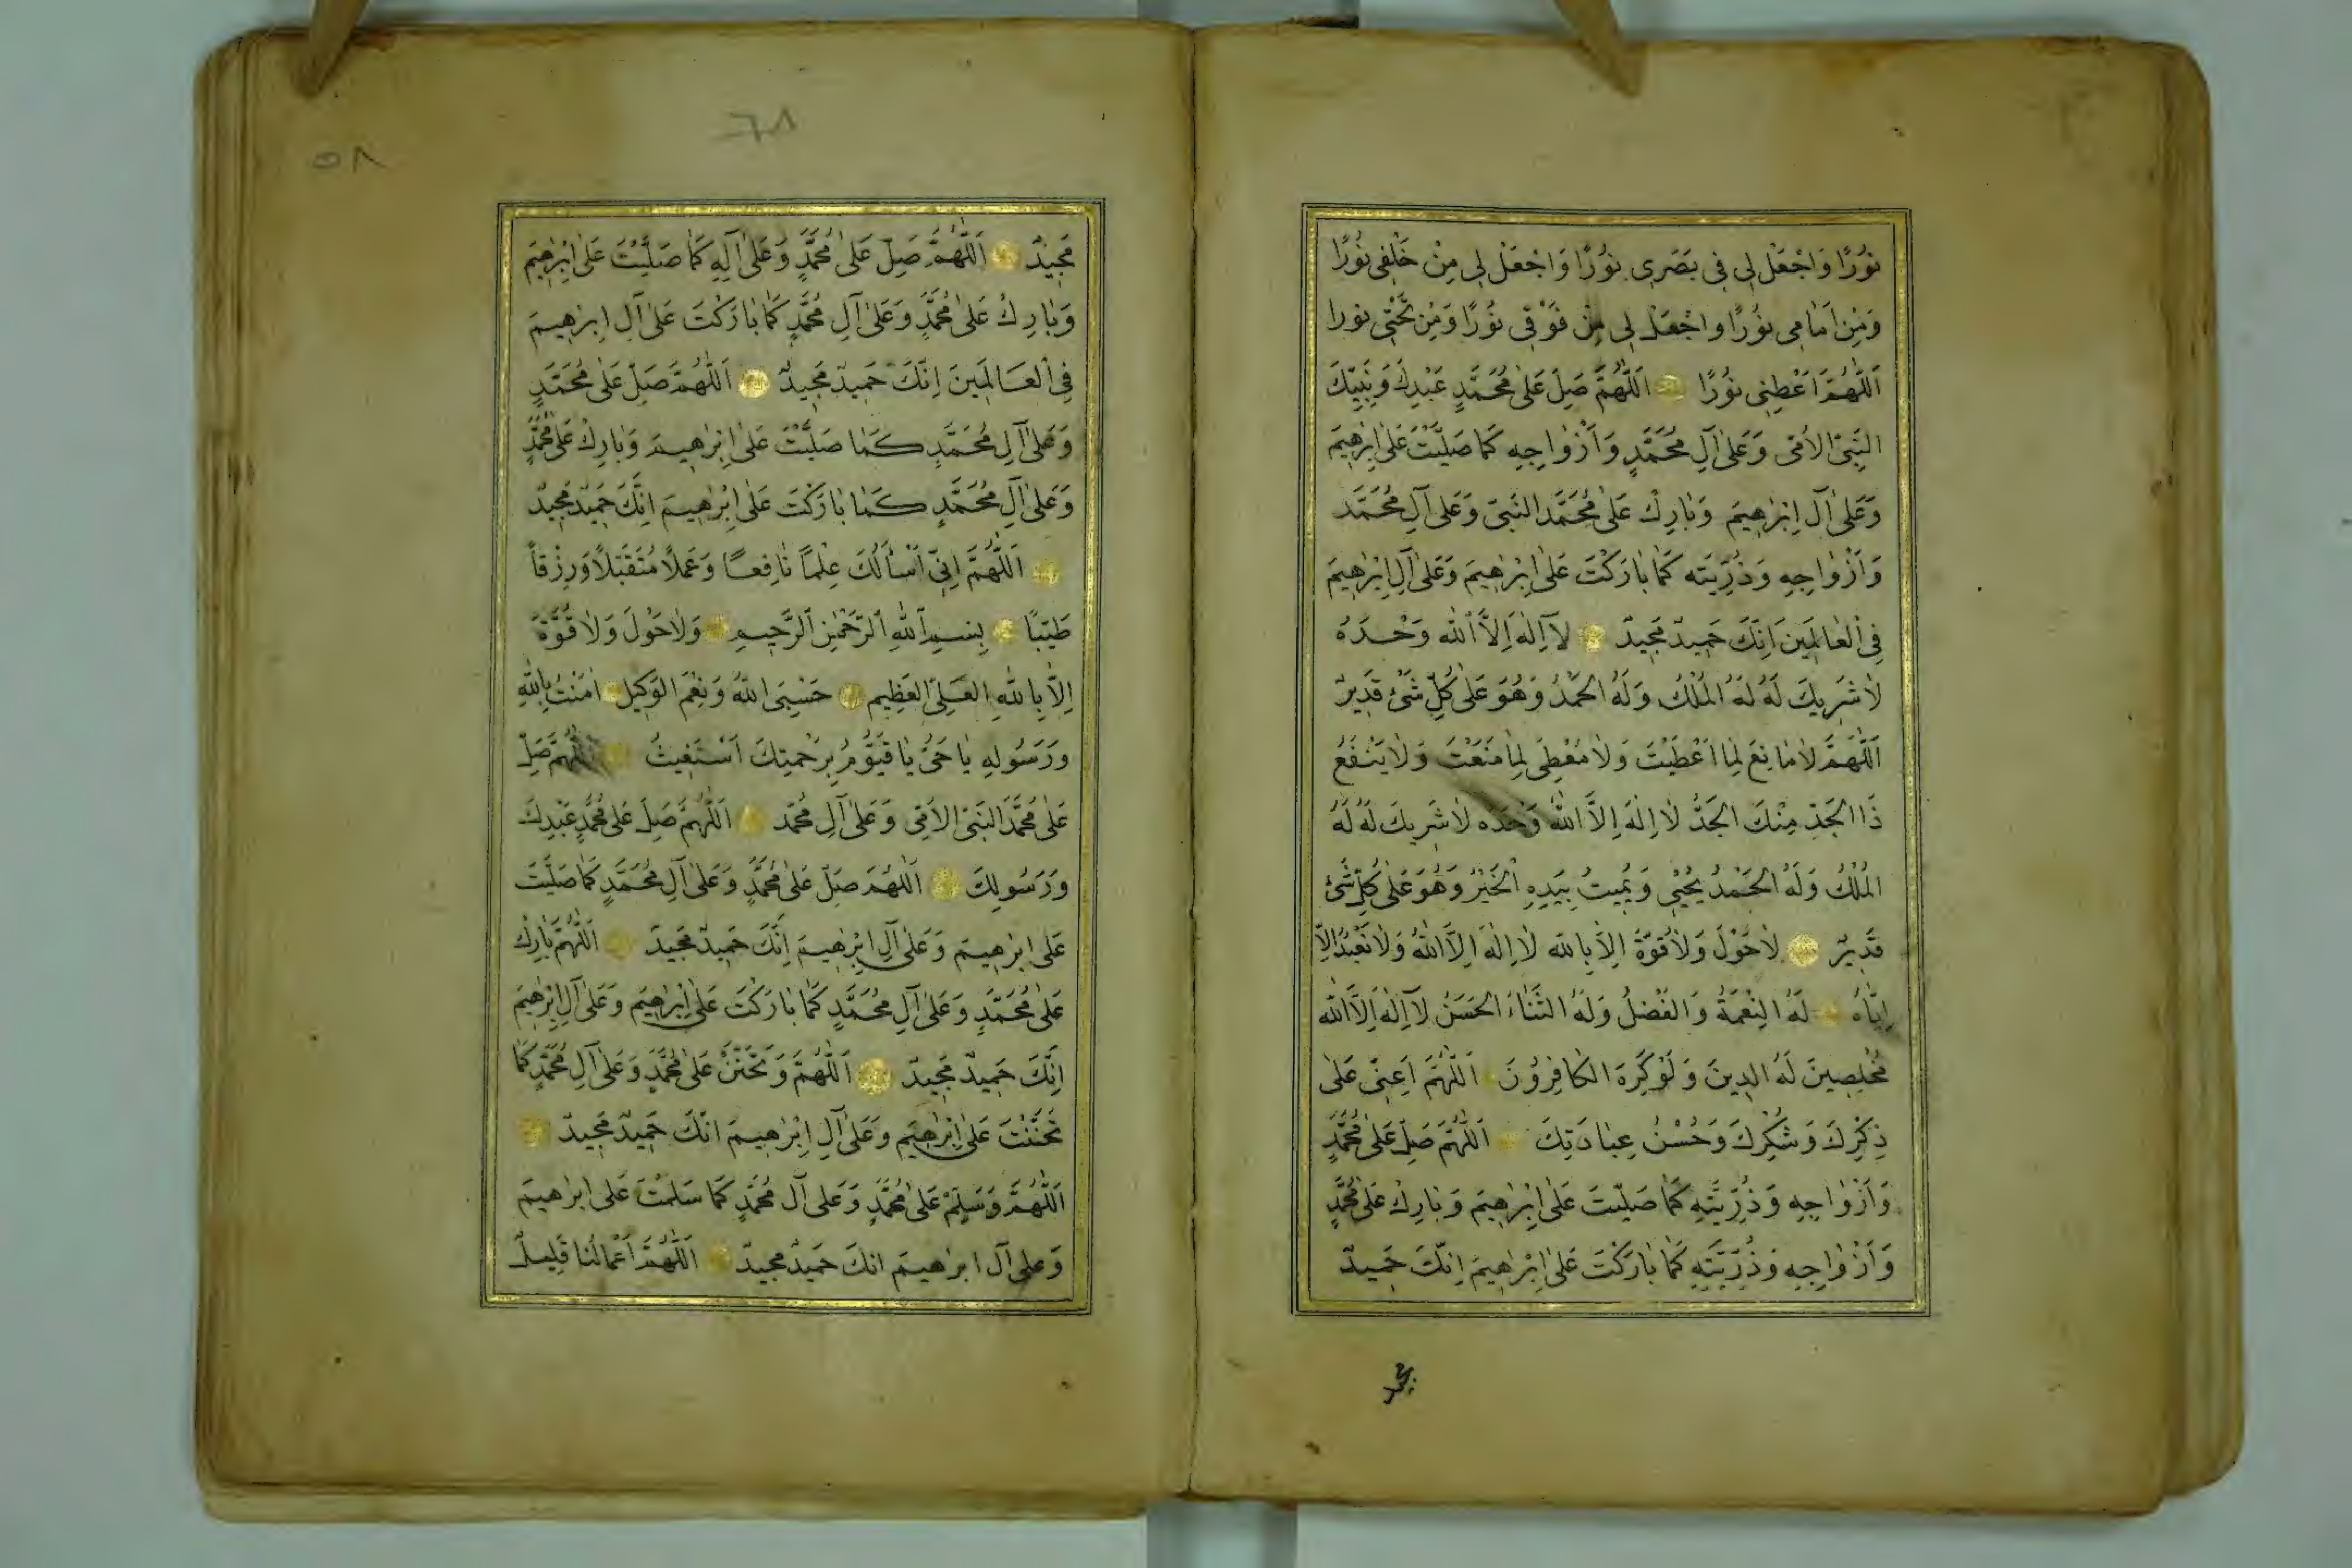 نُورًا وَاجْعَلْ لِي فِي بَصَرِي نُورًا وَاجْعَلْ لِي مِنْ خَلْفِي نُورًا
وَمِنْ اَمَامِي نُورًا واجْعَلْ لِي مِنْ فَوْقِي نُورًا وَمِنْ تَحْتِي نورا
اَللّٰهُمَّ اَعْطِنِي نُورًا اَللّٰهُمَّ صَلِّ عَلٰى مُحَمَّدٍ عَبْدِكَ وَنَبِيِّكَ
النَّبِيِّ الاُمِّي وَعَلٰى آلِ مُحَمَّدٍ وَاَزْوَاجِهِ كَمَا صَلَّيْتَ عَلٰى اِبْرٰهِيمَ
وَعَلٰى آلِ اِبْرٰهِيمَ وَبَارِكْ عَلٰى مُحَمَّدٍ النَّبِيِّ وَعَلٰى آلِ مُحَمَّد
وَاَزْوَاجِهِ وَذُرِّيَّتِه كَمَا بَارَكْتَ عَلٰى اِبْرٰهِيمَ وَعَلٰى آلِ اِبْرٰهِيمَ
فِي الْعَالَمِينَ اِنَّكَ حَمِيدٌ مَجِيدٌ لاَ اِلٰهَ اِلاَّ اللّٰه وَحْدَهُ
لاَ شَرِيكَ لَهُ لَهُ الْمُلْكُ وَلَهُ الْحَمْدُ وَهُوَ عَلٰى كُلِّ شَىْءٍ قَدِيرٌ
اَللّٰهُمَّ لاَ مَانِعَ لِمَا اَعْطَيْتَ وَلاَ مُعْطِيَ لِمَا مَنَعْتَ وَلاَ يَنْفَعُ
ذَا الْجَدِّ مِنْكَ الْجَدُّ لاَ اِلٰهَ اِلاَّ اللّٰه وَحْدَه لاَ شَرِيكَ لَهُ لَهُ
الْمُلْكُ وَلَهُ الْحَمْدُ يُحْيِي وَيُمِيتُ بِيَدِهِ الْخَيْرُ وَهُوَ عَلٰى كُلِّ شَىْءٍ
قَدِيرٌ لاَ حَوْلَ وَلاَ قُوَّةَ اِلاَّ بِاللّٰه لاَ اِلٰهَ اِلاَّ اللّٰهُ وَلاَ نَعْبُدُ اِلاَّ
اِيَّاهُ لَهُ النِّعْمَةُ وَالْفَضْلُ وَلَهُ الثَّنَاءُ الْحَسَنُ لاَ اِلٰهَ اِلاَّ اللّٰه
مُخْلِصِينَ لَهُ الدِينَ وَلَوْ كَرِهَ الْكَافِرُونَ اَللّٰهُمَّ اَعِنِّي عَلٰى
ذِكْرِكَ وَشُكْرِكَ وَحُسْنِ عِبَادَتِكَ اَللّٰهُمَّ صَلِّ عَلٰى مُحَمَّدٍ
وَاَزْوَاجِهِ وَذُرِّيَّتِهِ كَمَا صَلَّيْتَ عَلٰى اِبْرٰهِيمَ وَبَارِكْ عَلٰى مُحَمَّدٍ
وَاَزْوَاجِهِ وَذُرِّيَّتِهِ كَمَا بَارَكْتَ عَلٰى اِبْرٰهِيمَ اِنَّكَ حَمِيدٌ
مجيد
٦٨
٥٨
مَجِيدٌ اَللّٰهُمَّ صَلِّ عَلٰى مُحَمَّدٍ وَعَلٰى آلِهِ كَمَا صَلَّيْتَ عَلٰى اِبْرٰهِيمَ
وَبَارِكْ عَلٰى مُحَمَّدٍ وَعَلٰى آلِ مُحَمَّدٍ كَمَا بَارَكْتَ عَلٰى آلِ اِبرٰهِيمَ
فِي الْعَالَمِينَ اِنَّكَ حَمِيدٌ مَجِيدٌ اَللّٰهُمَّ صَلِّ عَلٰى مُحَمَّدٍ
وَعَلٰى آلِ مُحَمَّدٍ كَمَا صَلَّيْتَ عَلٰى اِبْرٰهِيمَ وَبَارِكْ عَلٰى مُحَمَّدٍ
وَعَلٰى آلِ مُحَمَّدٍ كَمَا بَارَكْتَ عَلٰى اِبْرٰهِيمَ اِنَّكَ حَمِيدٌ مَجِيدٌ
اَللّٰهُمَّ اِنِّي اَسْأَلُكَ عِلْمًا نَافِعًا وَعَمَلاً مُتَقَبَّلاً وَرِزْقاً
طَيِّبًا بِسْمِ اللّٰهِ الرَّحْمٰنِ الرَّحِيمِ وَلاَ حَوْلَ وَلاَ قُوَّةَ
اِلاَّ بِاللّٰهِ الْعَلِيِّ الْعَظِيمِ حَسْبِيَ اللّٰهُ وَنِعْمَ الْوَكِيلُ اٰمَنْتُ بِاللّٰهِ
وَرَسُولِهِ يَا حَيُّ يَا قَيُّومُ بِرَحْمَتِكَ اَسْتَغِيثُ اَللّٰهُمَّ صَلِّ
عَلٰى مُحَمَّدٍ النَّبِيِّ الاُمِّي وَعَلٰى آلِ مُحَمَّد اَللّٰهُمَّ صَلِّ عَلٰى مُحَمَّدٍ عَبْدِكَ
وَرَسُولِكَ اَللّٰهُمَّ صَلِّ عَلٰى مُحَمَّدٍ وَعَلٰى آلِ مُحَمَّدٍ كَمَا صَلَّيْتَ
عَلٰى اِبْرٰهِيمَ وَعَلٰى آلِ اِبْرٰهِيمَ اِنَّكَ حَمِيدٌ مَجِيدٌ اَللّٰهُمَّ بَارِكْ
عَلٰى مُحَمَّدٍ وَعَلٰى آلِ مُحَمَّدٍ كَمَا بَارَكْتَ عَلٰى اِبْرٰهِيمَ وَعَلٰى آلِ اِبْرٰهِيمَ
اِنَّكَ حَمِيدٌ مَجِيدٌ اَللّٰهُمَّ وَتَحَنَّنْ عَلٰى مُحَمَّدٍ وَعَلٰى آلِ مُحَمَّدٍ كَمَا
تَحَنَّنْتَ عَلٰى اِبْرٰهِيمَ وَعَلٰى آلِ اِبْرٰهِيمَ انَّكَ حَمِيدٌ مَجِيدٌ
اَللّٰهُمَّ وَسَلِّمْ عَلٰى مُحَمَّدٍ وَعَلٰى آلِ مُحَمَّدٍ كَمَا سَلَّمْتَ عَلٰى ابرٰهيمَ
وَعلٰى آل ابرٰهيمَ انكَ حَمِيدٌ مَجيدٌ اَللّٰهُمَّ اَعْمَالُنَا قَلِيلٌ